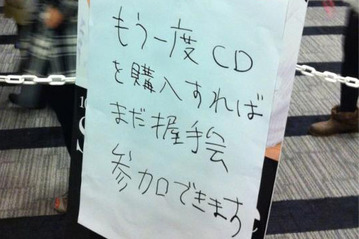 もう一度CD
を購入すれば
まだ握手会
参加できます